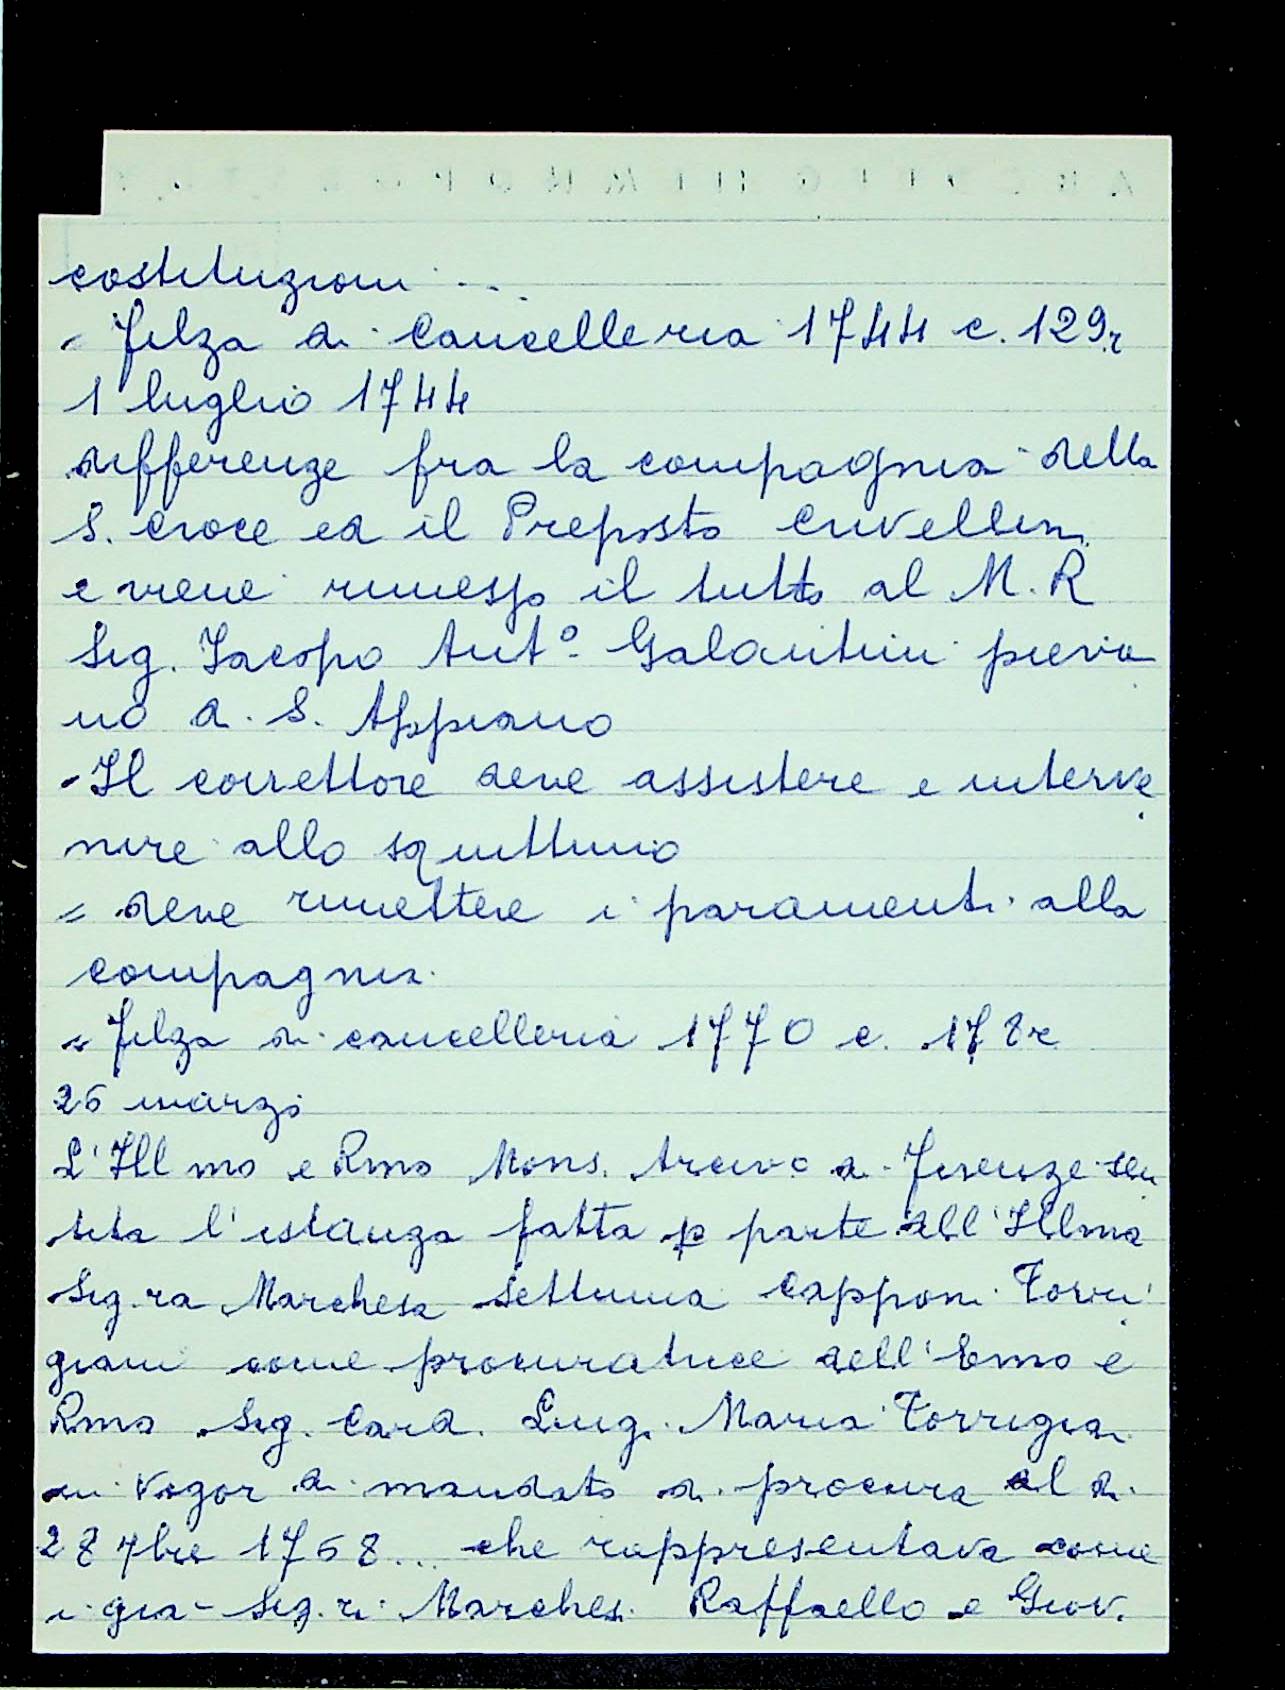 costituzioni ...
= Filza di Cancelleria 1744 c. 129r
1 luglio 1744
differenze fra la compagnia della
S. Croce ed il Preposto Crivellin
e viene rimesso il tutto al M. R
Sig. Iacopo Ant° Galantini pieva
no di S. Appiano
- Il correttore deve assistere e interve
nire allo squittinio
= deve rimettere i paramenti alla
compagnia
= Filza di cancelleria 1770 c. 178r
26 marzo
L'Ill mo e Rmo Mons. Arcivo di Firenze sen
tita l'istanza fatta p parte dell'Illma
Sig.ra Marchesa Settimia Capponi Torri
giani come procuratrice dell'Emo e
Rmo Sig. Card. Luigi Maria Torrigiani
in vigor di mandato di procura al di
28 7bre 1768... che rappresentava come
i già Sig.ri Marchesi Raffaello e Giov.